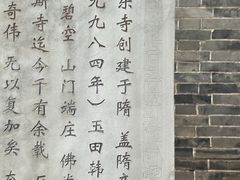 乐寺创建于隋 盖隋
元九八四年）玉田韩
碧空 山门端庄 佛
斯寺迄今千有余载
奇伟 无以复加矣